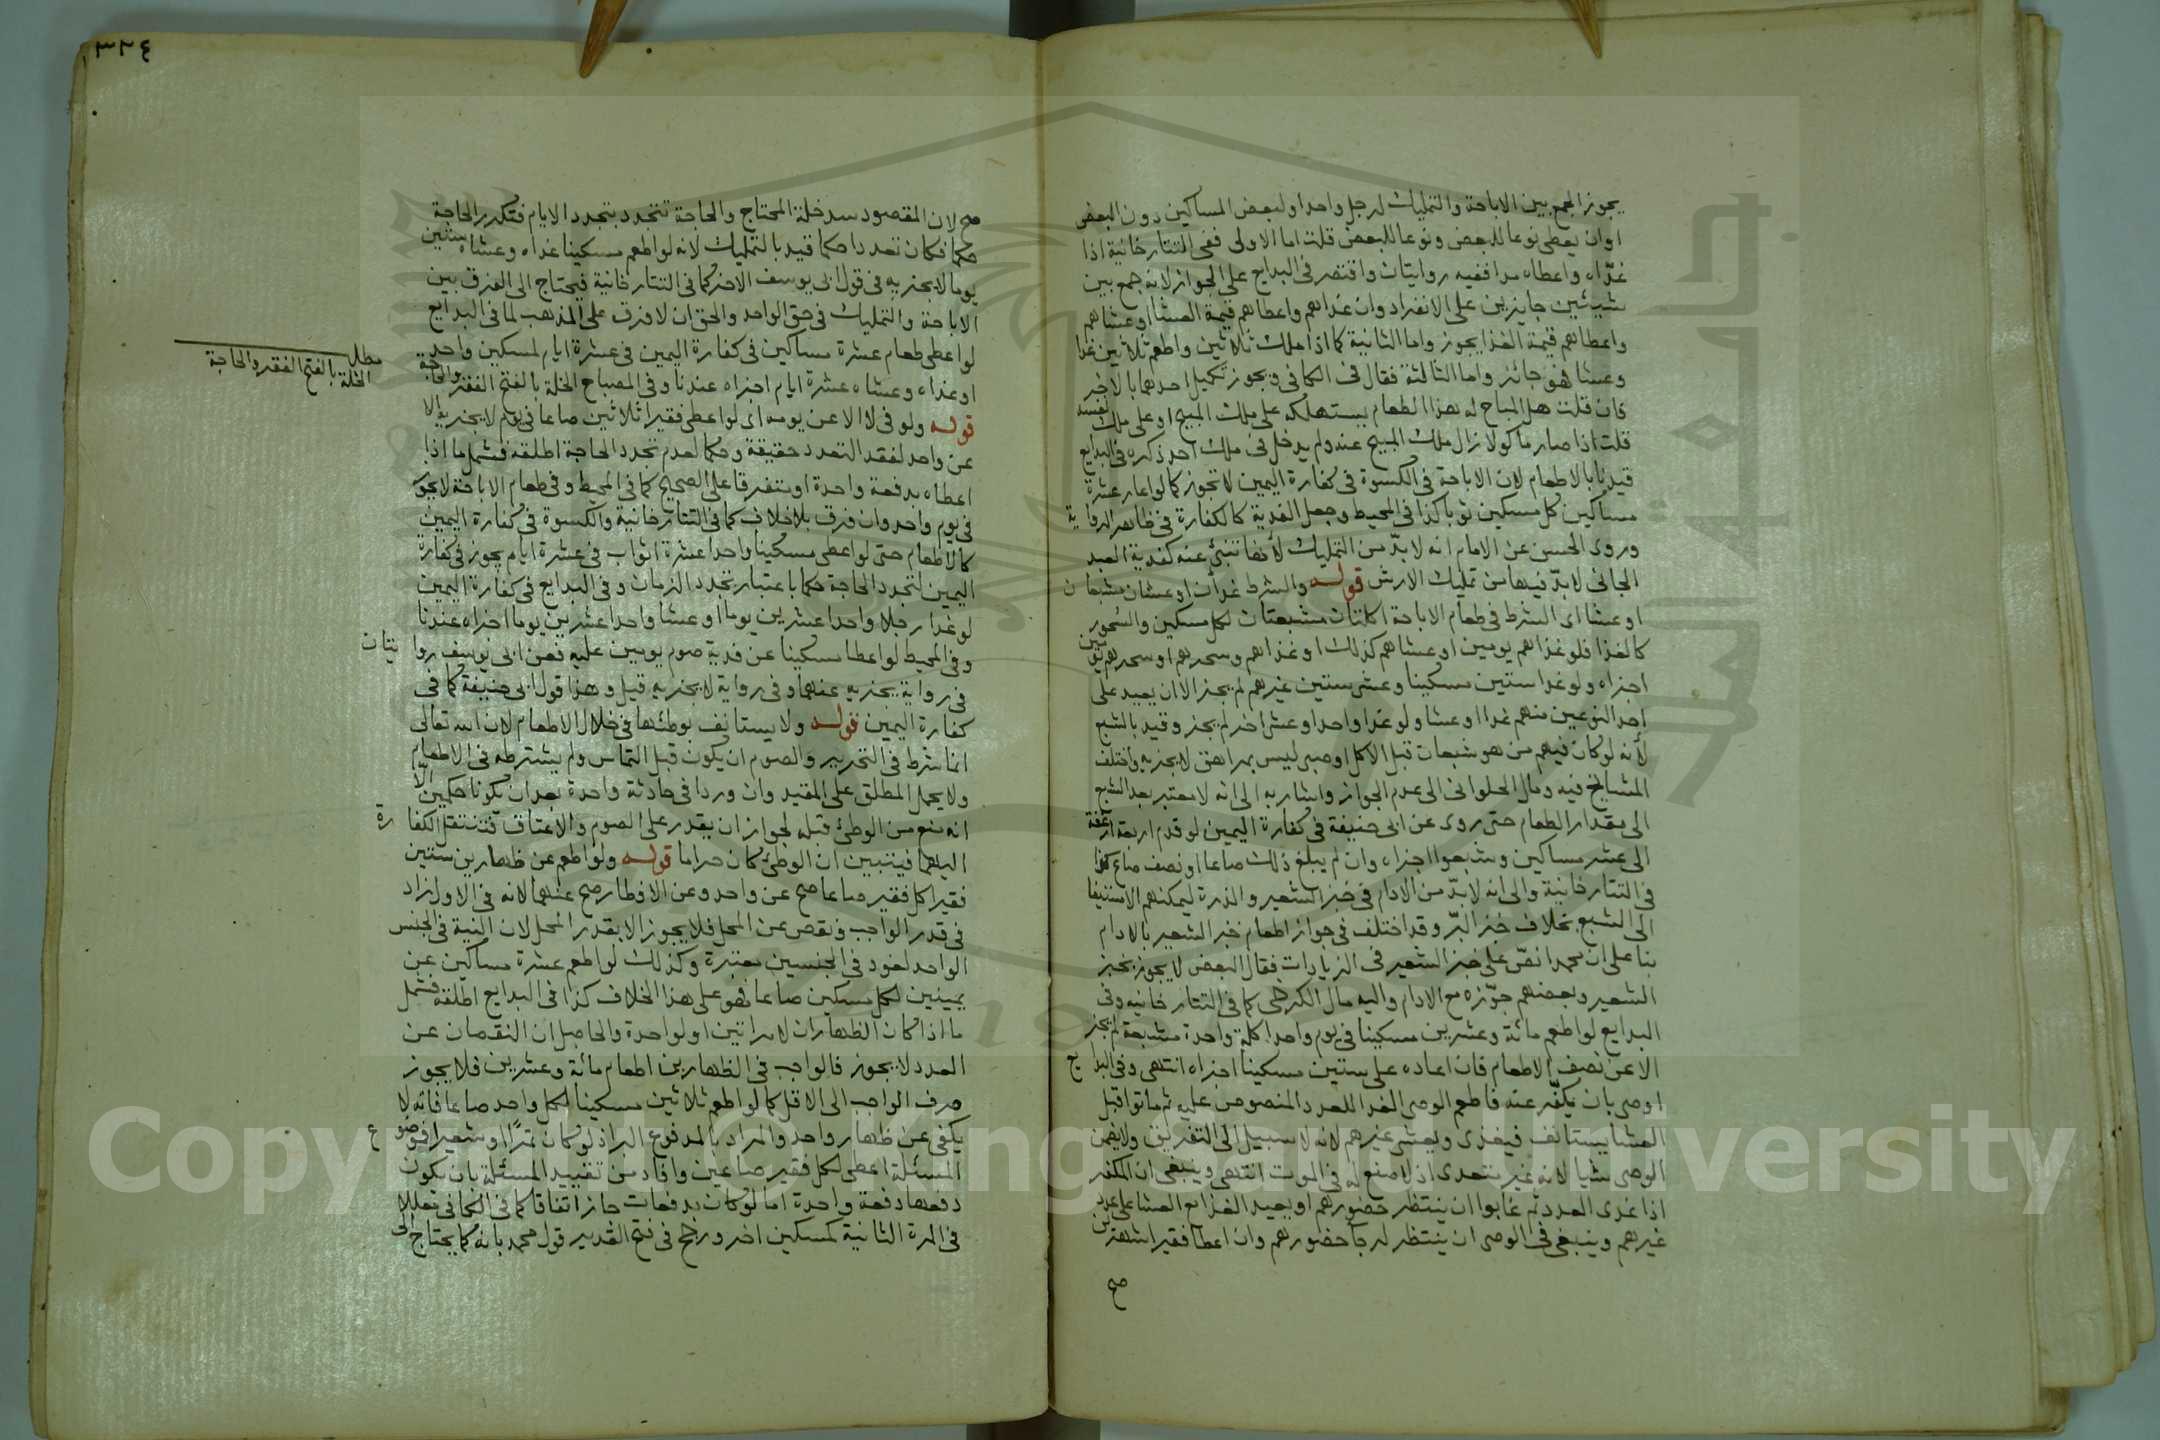 يجوز الجمع بين الاباحة والتمليك لرجل واحد او لبعض المساكين دون البعض
او ان يعطى نوعا للبعض ونوعا للبعض قلت اما الاولى ففى التتارخانية اذا
غدّاه واعطاه مدا ففيه روايتان واقتصر فى البدايع على الجواز لانه جمع بين
شيئين جايزين على الانفراد وان غداهم واعطاهم قيمة العشا او عشاهم
واعطاهم قيمة الغذا يجوز واما الثانية كما اذا ملك ثلاثين واطعم ثلاثين غدا
وعشا فهو جائز واما الثالثة فقال فى الكافى ويجوز تكميل احدهما بالاخر
فان قلت هل المباح له هذا الطعام يستهلكه على ملك المبيح او على ملك نفسه
قلت اذا صار ماكولا زال ملك المبيح عنه ولم يدخل فى ملك احد ذكره فى البدايع
قيدنا بالاطعام لان الاباحة فى الكسوة فى كفارة اليمين لا تجوز كما لو اعار عشرة
مساكين كل مسكين ثوبا كذا فى المحيط وجعل الفدية كالكفارة فى ظاهر الرواية
وروى الحسن عن الامام انه لا بدّ من التمليك لانها تنبئ عنه كفدية العبد
الجانى لا بدّ فيها من تمليك الارش قوله والشرط غدآن او عشاآن مشبعان
او عشا اى الشرط فى طعام الاباحة اكلتان مشبعتان لكل مسكين والسحور
كالغذا فلو غذاهم يومين او عشاهم كذلك او غذاهم وسحرهم او سحرهم يومين
اجزاه ولو غدا ستين مسكينا وعشى ستين غيرهم لم يجز الا ان يعيد على
احد النوعين منهم غدا او عشا ولو غدا واحدا وعشى اخر لم يجز وقيد بالشبع
لأنه لو كان فيهم من هو شبعان قبل الاكل او صبى ليس بمراهق لا يجزيه واختلف
المشايخ فيه ومال الحلوانى الى عدم الجواز واشار به الى انه لا معتبر بعد الشبع
الى مقدار الطعام حتى روى عن ابى حنيفة فى كفارة اليمين لو قدم اربعة ارغفة
الى عشر مساكين وشبعوا اجزاه وان لم يبلغ ذلك صاعا او نصف صاع كذا
فى التتارخانية والى انه لا بدّ من الادام فى خبز الشعير والذرة ليمكنهم الاستيفا
الى الشبع بخلاف خبز البرّ وقد اختلف فى جواز اطعام خبز الشعير بالادام
بنا على ان محمدا نصّ على خبز الشعير فى الزيادات فقال البعض لا يجوز بخبز
الشعير وبعضهم جوّزه مع الادام واليه مال الكرخى كما فى التتارخانيه وفى
البدايع لو اطعم مائة وعشرين مسكينا فى يوم واحد اكلة واحدة مشبعة لم يجز
الا عن نصف الاطعام فان اعاده على ستين مسكينا اجزاه انتهى وفى البدايع
اوصى بان يكفّر عنه فاطعم الوصى الغدا للعدد المنصوص عليه ثم ماتوا قبل
العشا يستانف فيغدى ويعشى غيرهم لانه لا سبيل الى التفريق ولا يضمن
الوصى شيا لانه غير متعدى اذ لا صنع له فى الموت انتهى وينبغى ان المكفر
اذا غدى العدد ثم غابوا ان ينتظر حضورهم او يعيد الغذا مع العشا على عدد
غيرهم وينبغى فى الوصى ان ينتظر لرجآ حضورهم وان اعطا فقيرا شهرين
صح
٣٢٤
صح لان المقصود سد خلة المحتاج والحاجة تتجدد بتجدد الايام فتكرر الحاجة
حكما فكان تعددا حكما قيد بالتمليك لانه لو اطعم مسكينا غداه وعشاه ستين
يوما لا يجزيه فى قول ابى يوسف الاخر كما فى التتارخانية فيحتاج الى الفرق بين
الاباحة والتمليك فى حق الواحد والحق ان لا فرق على المذهب لما فى البدايع
لو اعطى طعام عشرة مساكين فى كفارة اليمين فى عشرة ايام لمسكين واحد
او غداه وعشاه عشرة ايام اجزاه عندنا وفى المصباح الخلة بالفتح الفقر والحاجة
مطلب
الخلة بالفتح الفقر والحاجة
قوله ولو فى لا الا عن يومه اى لو اعطى فقيرا ثلاثين صاعا فى يوم لا يجزيه الا
عن واحد لفقد التعدد حقيقة وحكما لعدم تجدد الحاجة اطلقه فشمل ما اذا
اعطاه بدفعة واحدة او متفرقا على الصحيح كما فى المحيط وفى طعام الاباحة لا يجوز
فى يوم واحد وان فرق بلا خلاف كما فى التتارخانية والكسوة فى كفارة اليمين
كالاطعام حتى لو اعطى مسكينا واحدا عشرة اثواب فى عشرة ايام يجوز فى كفارة
اليمين لتجدد الحاجة حكما باعتبار تجدد الزمان وفى البدايع فى كفارة اليمين
لو غدا رجلا واحدا عشرين يوما او عشا واحدا عشرين يوما اجزاه عندنا
وفى المحيط لو اعطا مسكينا عن فدية صوم يومين عليه فعن ابى يوسف روايتان
فى رواية يجزيه عنهما وفى رواية لا يجزيه قيل وهذا قول ابى حنيفة كما فى
كفارة اليمين قوله ولا يستانف بوطئها فى خلال الاطعام لان الله تعالى
انما شرط فى التحرير والصوم ان يكون قبل التماس ولم يشترطه فى الاطعام
ولا يحمل المطلق على المقيد وان وردا فى حادثة واحدة بعد ان يكونا حكمين الّا
انه منع من الوطئ قبله لجواز ان يقدر على الصوم والاعتاق فتنتقل الكفارة
اليهما فيتبين ان الوطئ كان حراما قوله ولو اطعم عن ظهارين ستين
فقيرا كل فقير صاعا صح عن واحد وعن الافطار صح عنهما لانه فى الاول زاد
فى قدر الواجب ونقص عن المحل فلا يجوز الا بقدر المحل لان النية فى الجنس
الواحد لغو وفى الجنسين معتبرة وكذلك لو اطعم عشرة مساكين عن
يمينين لكل مسكين صاعا فهو على هذا الخلاف كذا فى البدايع اطلقه فشمل
ما اذا كان الظهاران لامراتين او لواحدة والحاصل ان النقصان عن
العدد لا يجوز فالواجب فى الظهارين اطعام مائة وعشرين فلا يجوز
صرف الواجب الى الاقل كما لو اطعم ثلاثين مسكينا لكل واحد صاعا فانه لا
يكفى عن ظهار واحد والمراد بالمدفوع البر اذ لو كان تمرًا او شعيرا فموضوع
المسئلة اعطى لكل فقير صاعين وافاد من تقييد المسئلة بان يكون
دفعها دفعة واحدة اما لو كان بدفعات جاز اتفاقا كما فى الكافى معللا
فى المرة الثانية كمسكين اخر ورجح فى فتح القدير قول محمد بانه كما يحتاج الى
Copyright © King Saud University